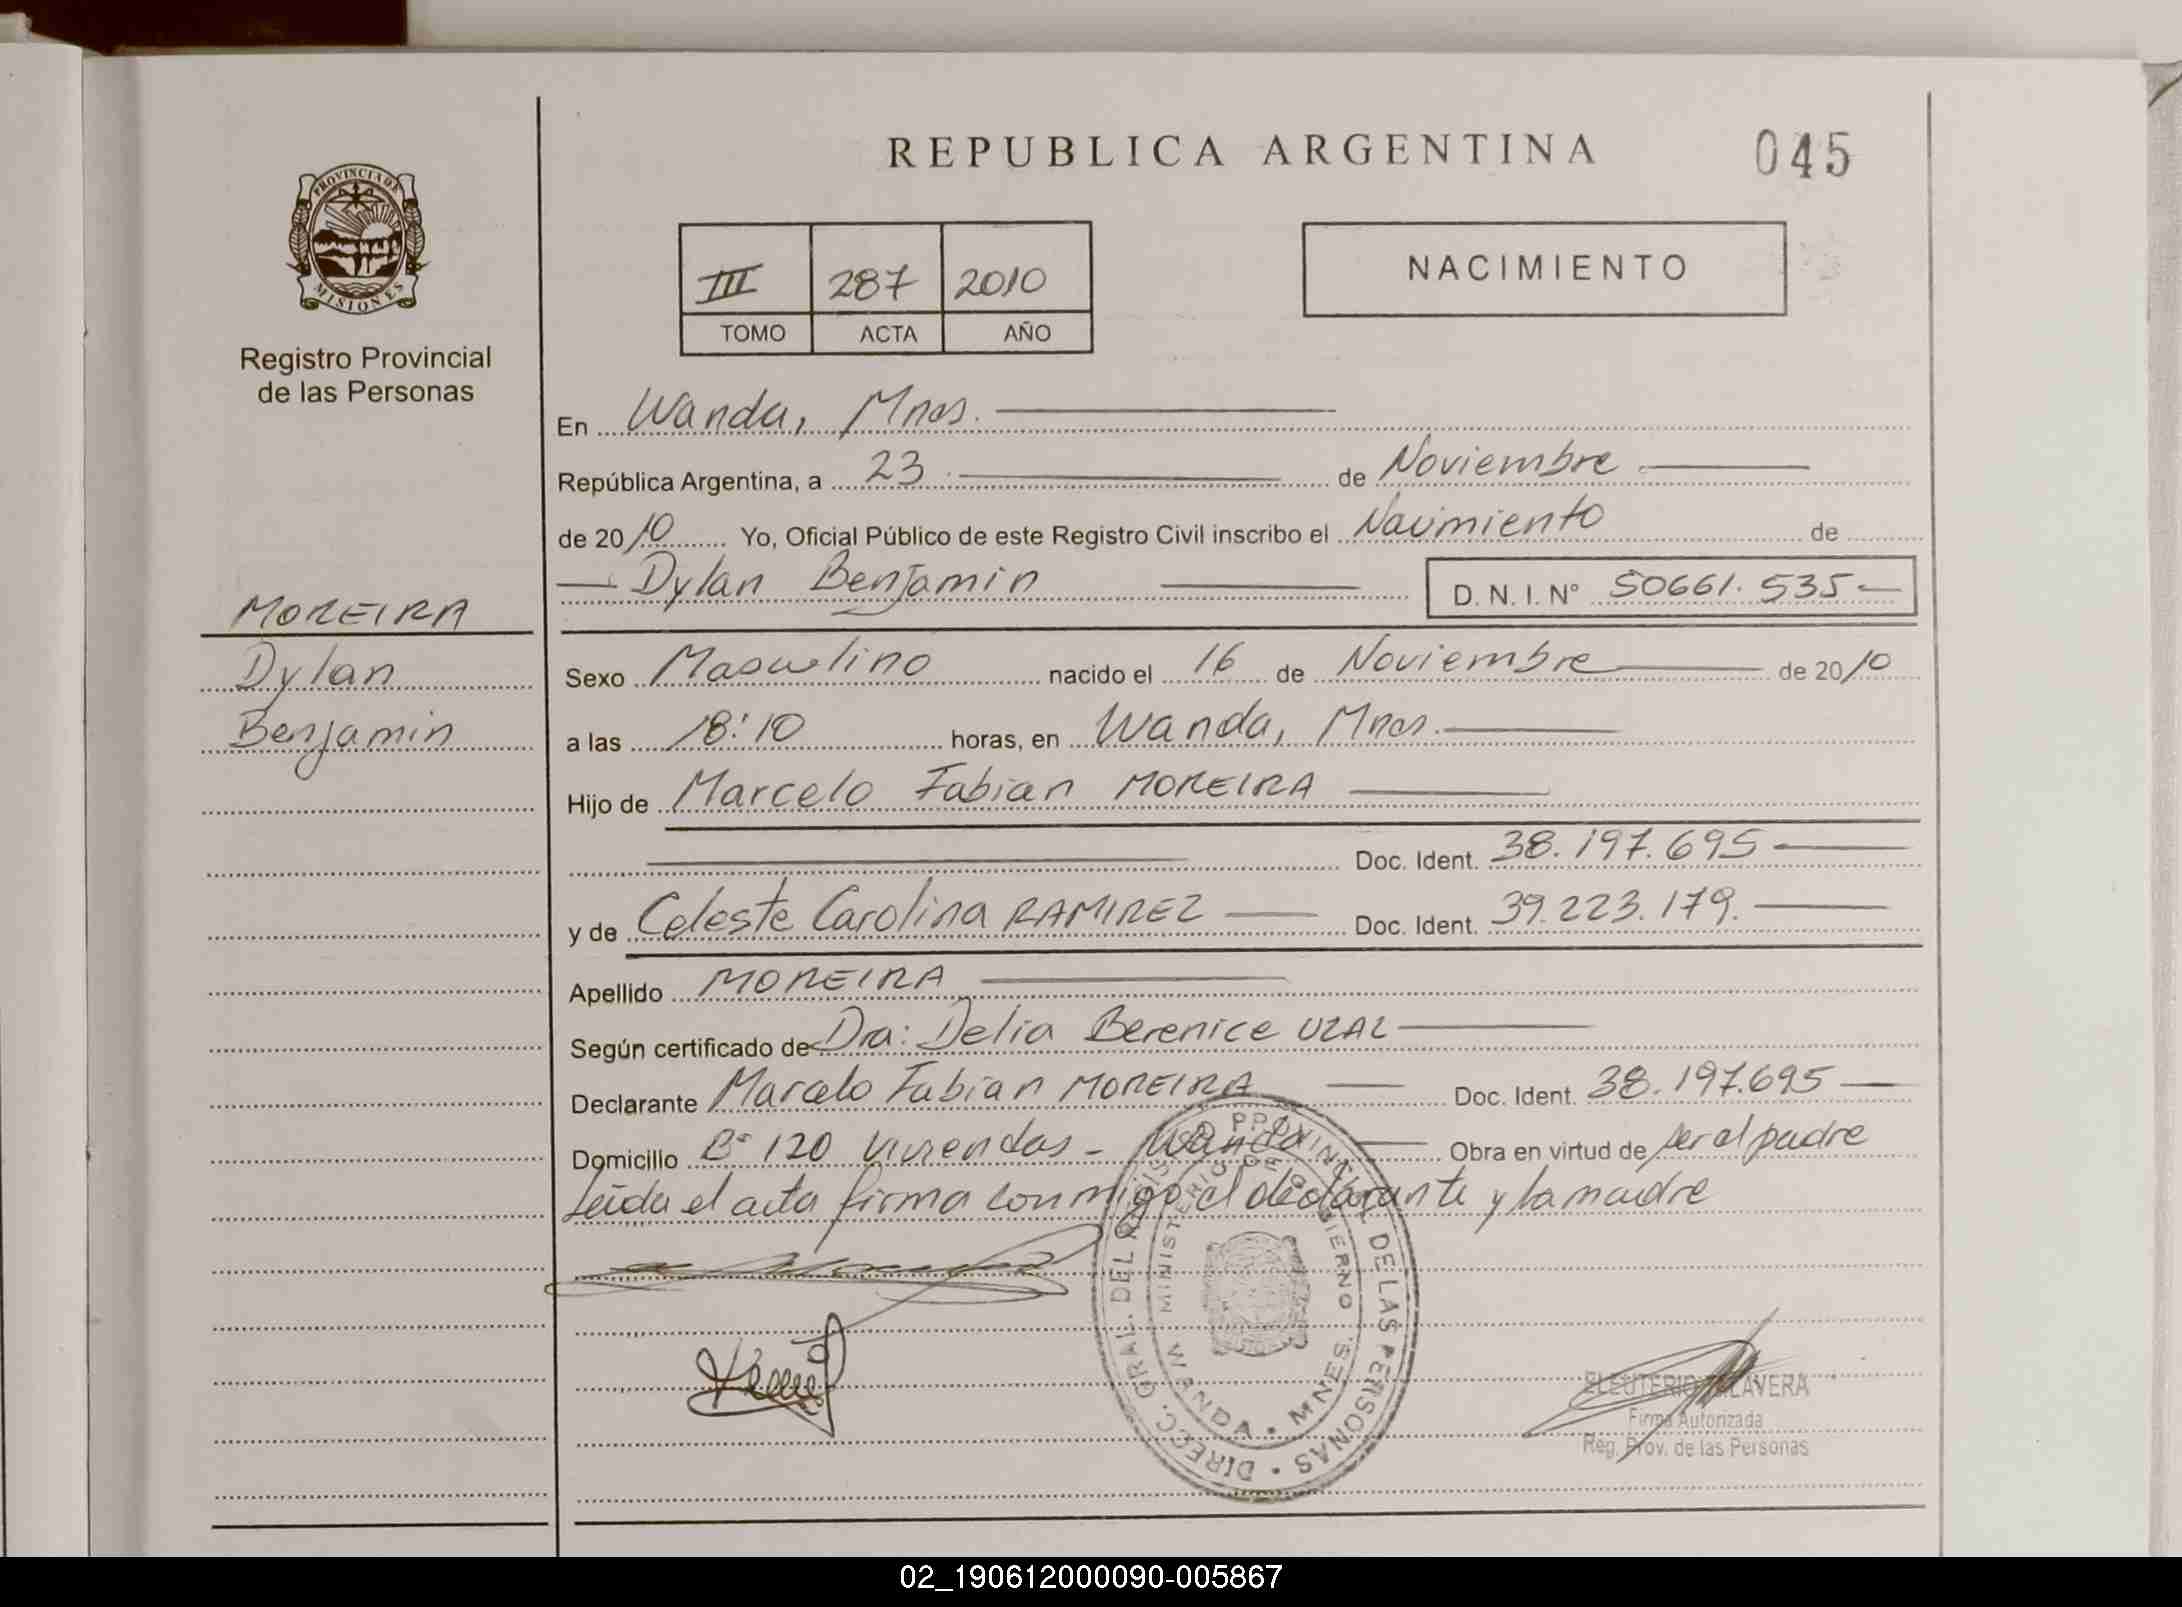 REPUBLICA ARGENTINA 045
PROVINCIA DE
MISIONES
Registro Provincial
de las Personas
III 287 2010
TOMO ACTA AÑO
NACIMIENTO
En Wanda, Mnes.
República Argentina, a 23 de Noviembre
de 2010 Yo, Oficial Público de este Registro Civil inscribo el Nacimiento de
Dylan Benjamin D.N.I. N° 50661.535
MOREIRA
Dylan
Benjamin
Sexo Masculino nacido el 16 de Noviembre de 2010
a las 18:10 horas, en Wanda, Mnes.
Hijo de Marcelo Fabian MOREIRA
Doc. Ident. 38.197.695
y de Celeste Carolina RAMIREZ Doc. Ident. 39.223.179.
Apellido MOREIRA
Según certificado de Dra: Delia Berenice UZAL
Declarante Marcelo Fabian MOREIRA Doc. Ident. 38.197.695
Domicilio B° 120 viviendas - Wanda Obra en virtud de ser el padre
Leida el acta firma conmigo el declarante y la madre
DIRECC. GRAL. DEL REGISTRO PROVINCIAL DE LAS PERSONAS
MINISTERIO DE GOBIERNO
WANDA • MNES.
ELEUTERIO TALAVERA
Firma Autorizada
Reg. Prov. de las Personas
02_190612000090-005867